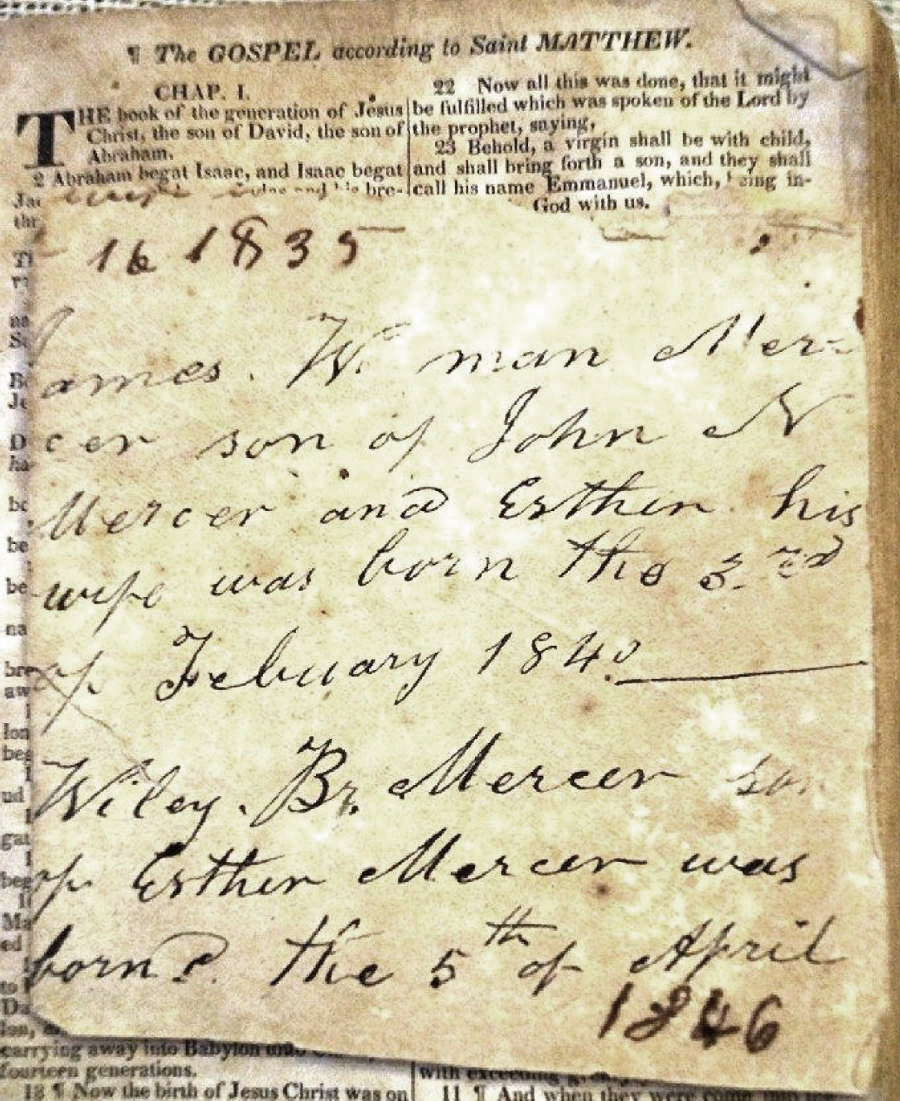 ¶ The GOSPEL according to Saint MATTHEW.
CHAP. I.
THE book of the generation of Jesus
Christ, the son of David, the son of
Abraham.
2 Abraham begat Isaac, and Isaac begat
and his bre-
22 Now all this was done, that it might
be fulfilled which was spoken of the Lord by
the prophet, saying,
23 Behold, a virgin shall be with child,
and shall bring forth a son, and they shall
call his name Emmanuel, which, being in-
God with us.
16 1835
James. W. man Mer-
cer son of John N
Mercer and Esther his
wife was born the 3rd
of Febuary 1840
Wiley. Br. Mercer son
of Esther Mercer was
born the 5th of April
1846
carrying away into Babylon
fourteen generations.
18 ¶ Now the birth of Jesus Christ was on
with exceeding
11 ¶ And when they were come into the